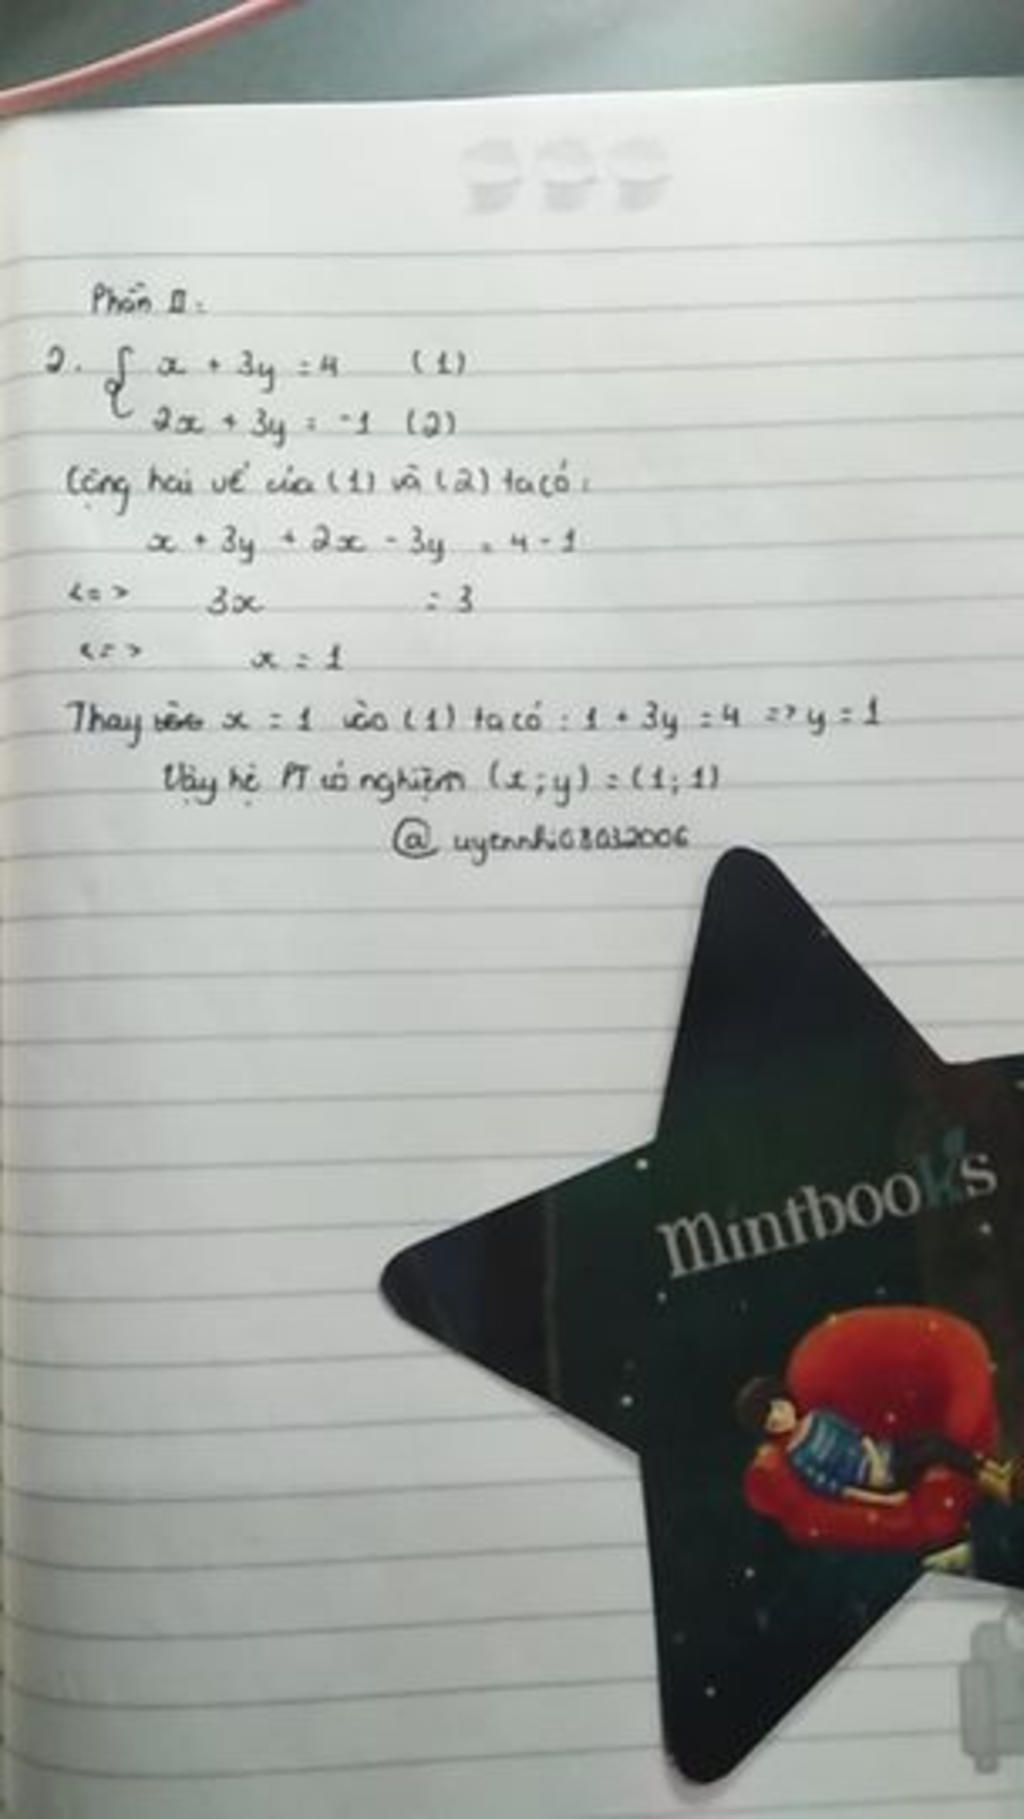 Phần II:
2. { x + 3y = 4 (1)
2x + 3y = -1 (2)
Cộng hai vế của (1) và (2) ta có:
x + 3y + 2x - 3y = 4 - 1
<=> 3x = 3
<=> x = 1
Thay x = 1 vào (1) ta có: 1 + 3y = 4 => y = 1
Vậy hệ PT có nghiệm (x; y) = (1; 1)
@ uyennhi08032006
Mintbooks